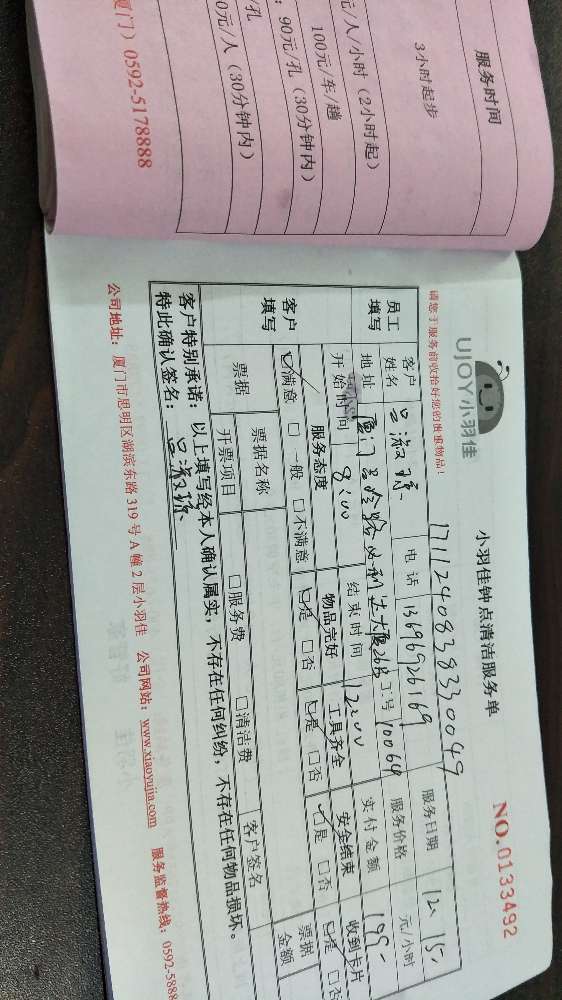 服务时间
3小时起步
元/人/小时（2小时起）
100元/车/趟
：90元/孔（30分钟内）
/孔
0元/人（30分钟内）
厦门）0592-5178888
UJOY小羽佳
小羽佳钟点清洁服务单
NO.0133492
请您于服务前收拾好您的贵重物品！
1711240838330049
服务日期 12 15
员工填写
客户姓名 吕淑琼 电话 13696926169 服务价格 元/小时
地址 厦门吕岭路 大厦26B 工号 10064 实付金额 199-
开始时间 8:00 结束时间 12:00
客户填写
服务态度 物品完好 工具齐全 安全结束 收到卡片
☑满意 □一般 □不满意 ☑是 □否 ☑是 □否 ☑是 □否 ☑是 □否
票据 票据名称 客户签名 票据金额
开票项目 □服务费 □清洁费
客户特别承诺：以上填写经本人确认属实，不存在任何纠纷，不存在任何物品损坏。
特此确认签名：吕淑琼
公司地址：厦门市思明区湖滨东路319号A幢2层小羽佳 公司网站：www.xiaoyujia.com 服务监督热线：0592-5888